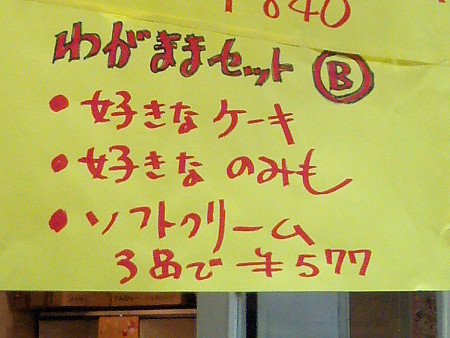 ¥840
わがままセット Ⓑ
・好きなケーキ
・好きな のみも
・ソフトクリーム
3品で ¥577